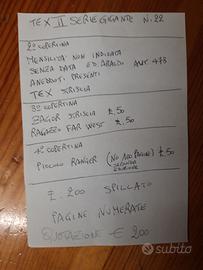 TEX II SERIE GIGANTE N. 22
2º COPERTINA
MENSILITÀ NON INDICATA
SENZA DATA ED. ARALDO AUT 473
ANEDDOTI PRESENTI
TEX STRISCIA
3º COPERTINA
ZAGOR STRISCIA £.50
RAGAZZO FAR WEST £.50
4º COPERTINA
PICCOLO RANGER (NO 100 PAGINE) £.50
SECONDA
EDIZIONE
£. 200 SPILLATO
PAGINE NUMERATE
QUOTAZIONE € 200
subito